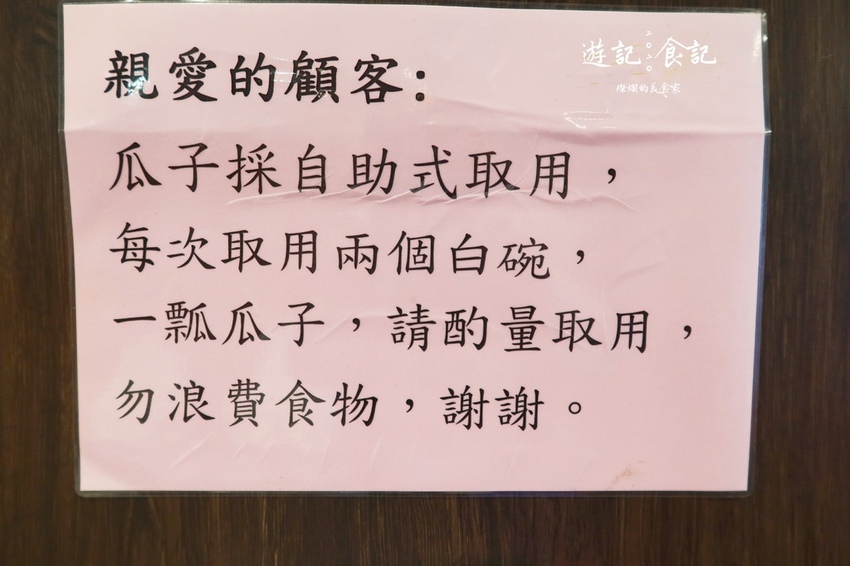 親愛的顧客:
瓜子採自助式取用，
每次取用兩個白碗，
一瓢瓜子，請酌量取用，
勿浪費食物，謝謝。
遊記 2020 食記
燦爛的美食家